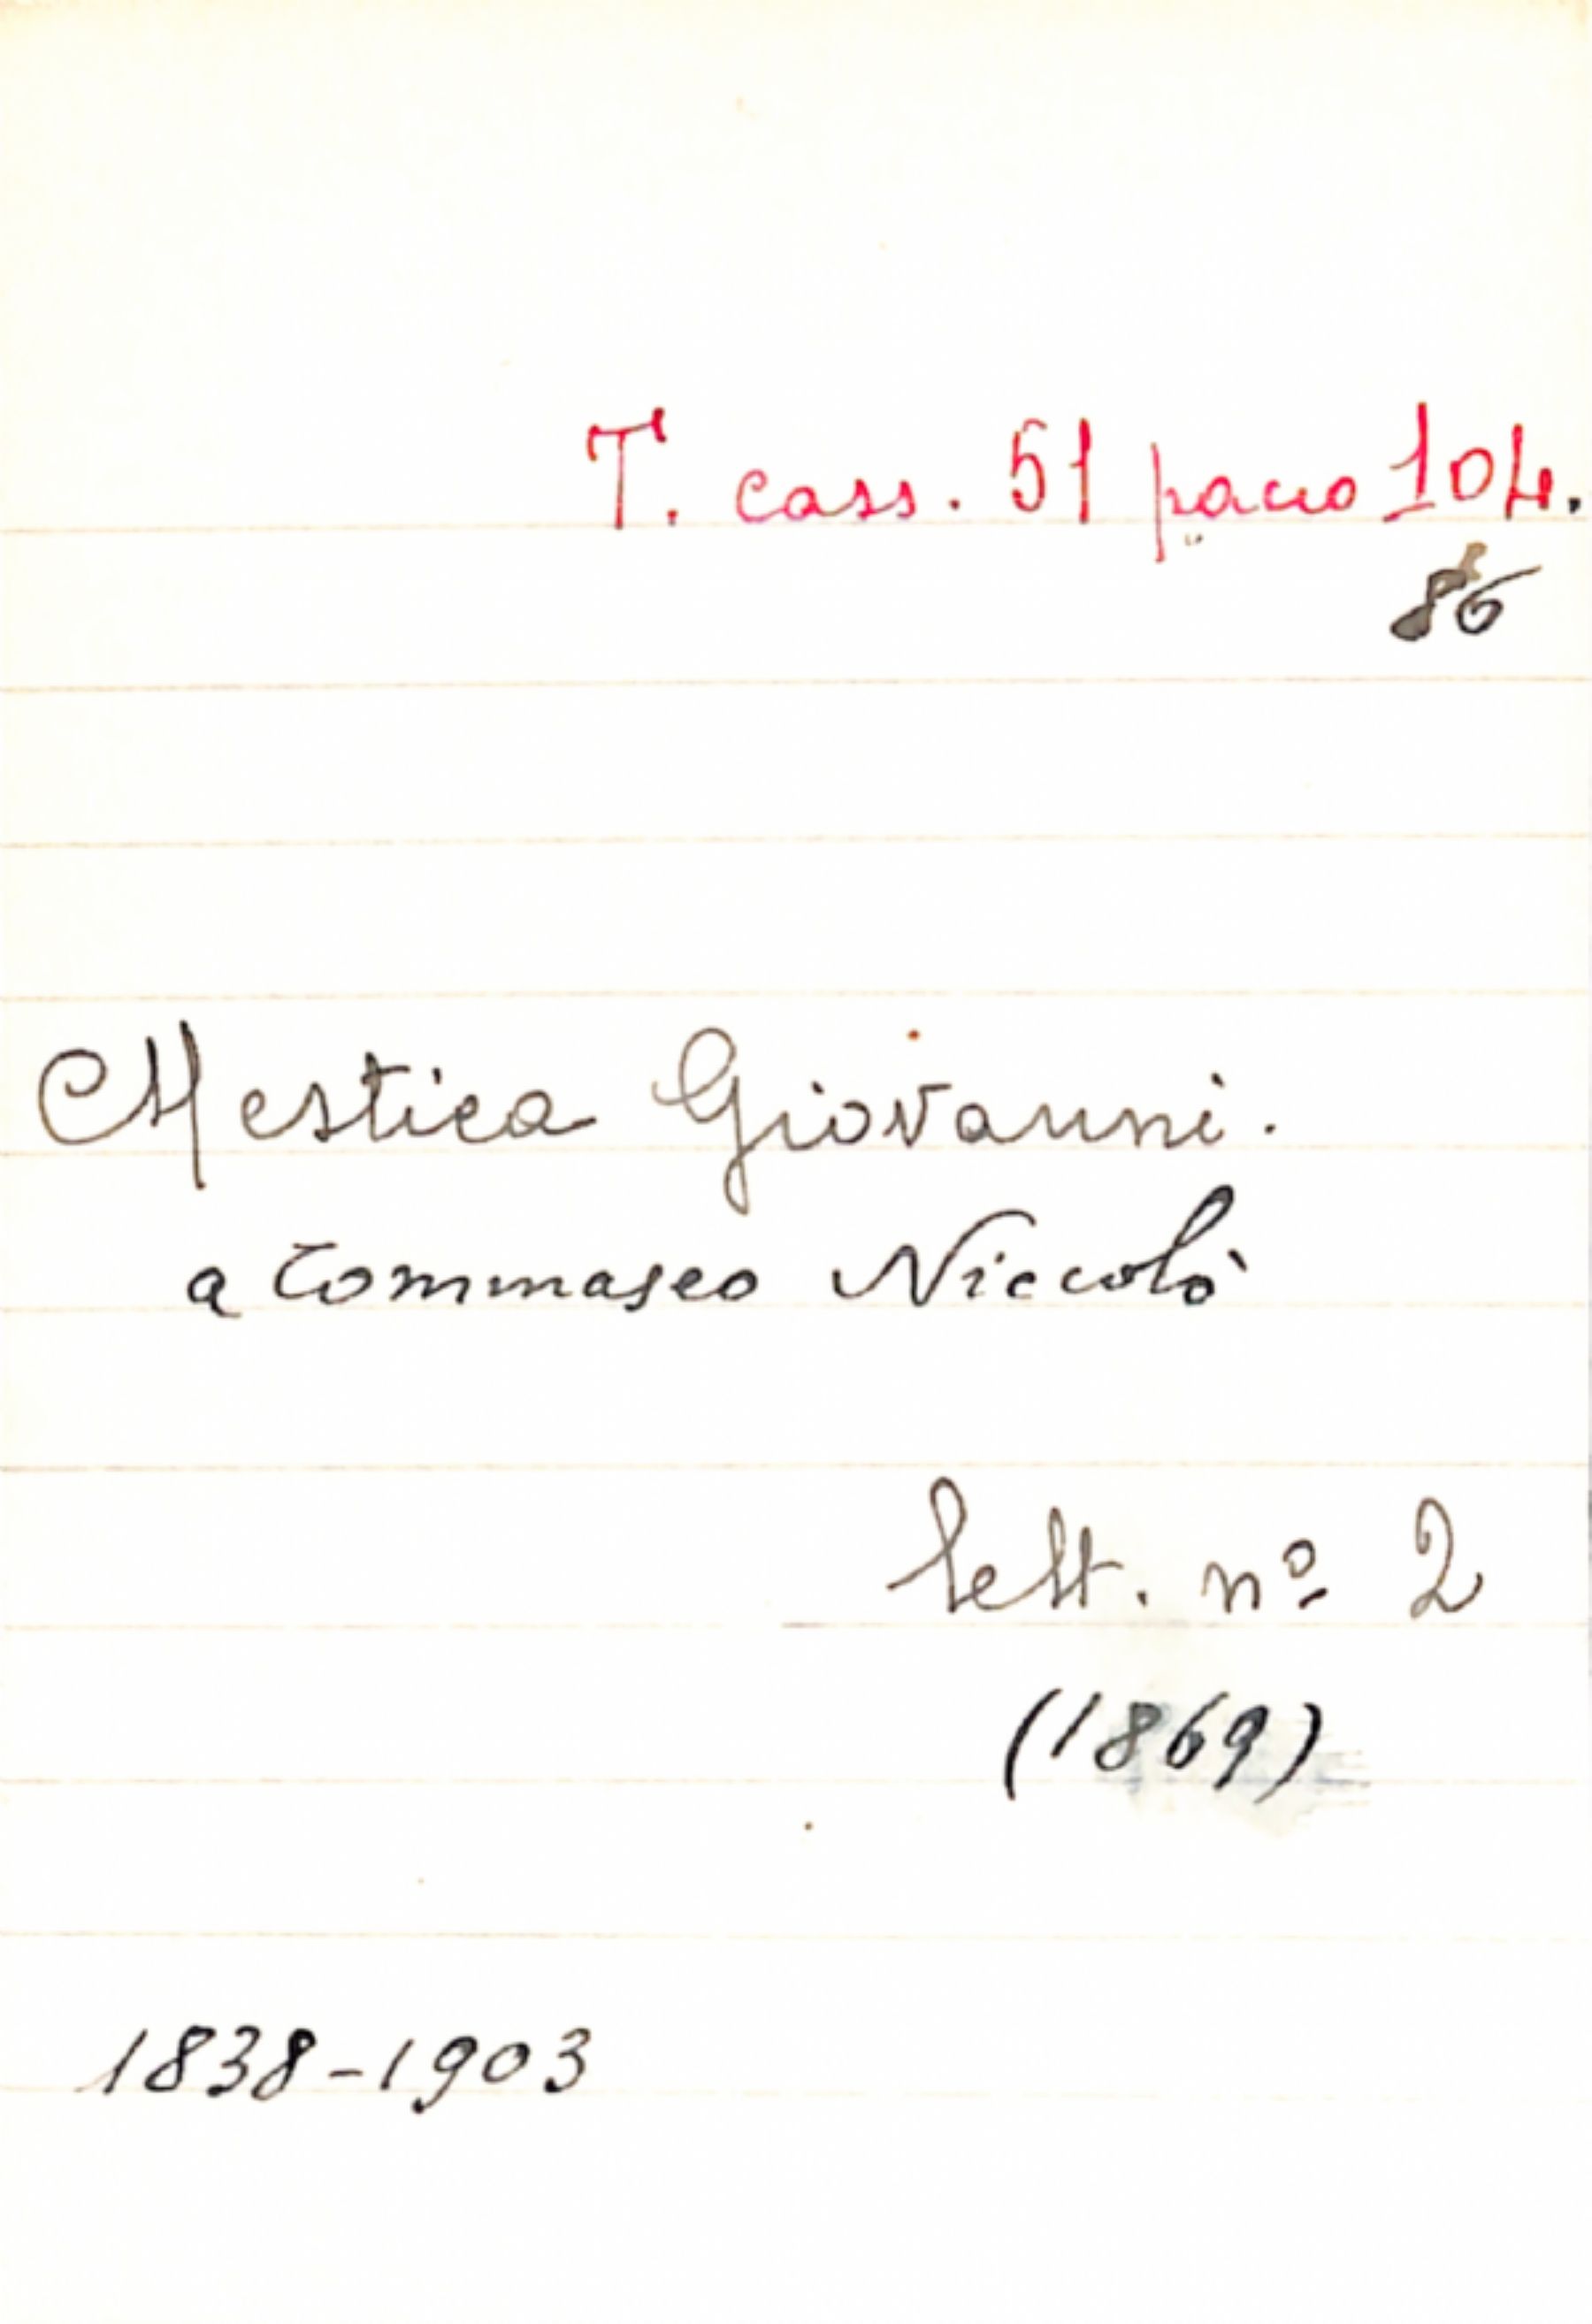 T. cass. 51 pacco 104.
86
Mestica Giovanni.
a Tommaseo Niccolò
lett. nº 2
(1869)
1838-1903